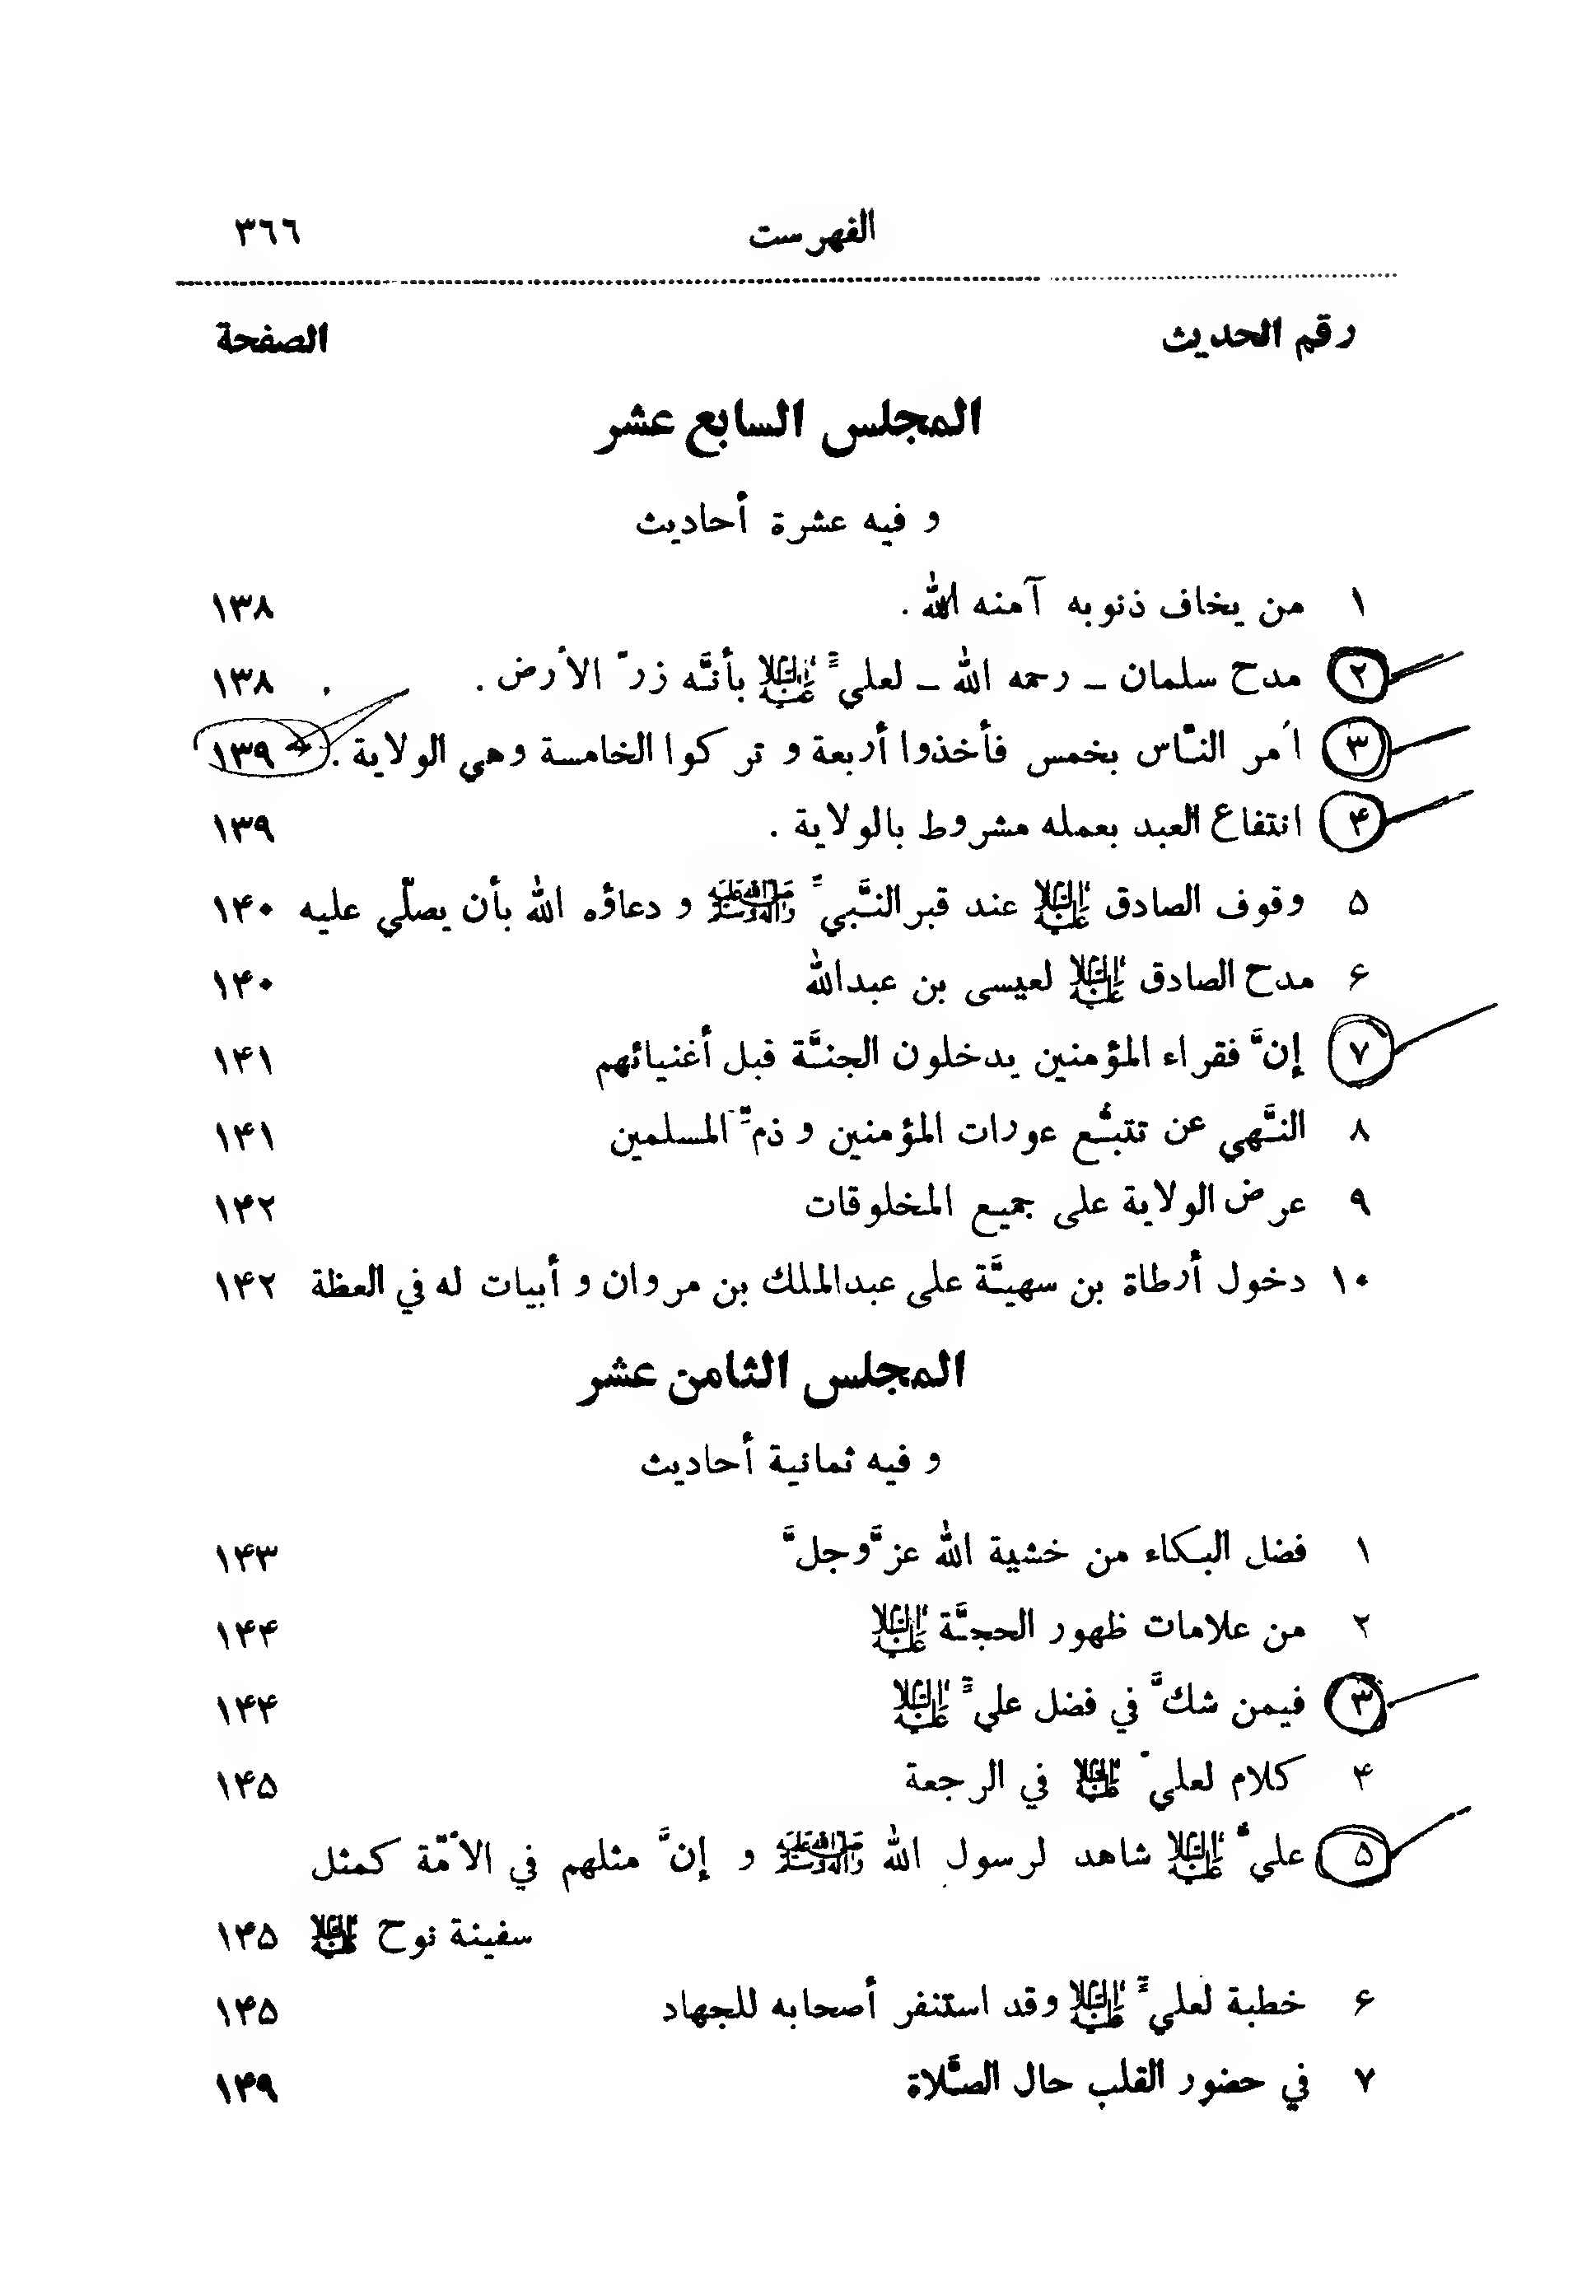 الفهرست ٣٦٦
رقم الحديث الصفحة
المجلس السابع عشر
و فيه عشرة أحاديث
۱ من يخاف ذنوبه آمنه الله . ۱۳۸
۲ مدح سلمان ــ رحمه الله ــ لعليّ عليه السلام بأنّه زرّ الأرض . ۱۳۸
۳ اُمر النّاس بخمس فأخذوا أربعة و تركوا الخامسة وهي الولاية . ۱۳۹
۴ انتفاع العبد بعمله مشروط بالولاية . ۱۳۹
۵ وقوف الصادق عليه السلام عند قبر النّبيّ صلى الله عليه وآله وسلم و دعاؤه الله بأن يصلّي عليه ۱۴۰
۶ مدح الصادق عليه السلام لعيسى بن عبدالله ۱۴۰
۷ إنّ فقراء المؤمنين يدخلون الجنّة قبل أغنيائهم ۱۴۱
۸ النّهي عن تتبّع عورات المؤمنين و ذمّ المسلمين ۱۴۱
۹ عرض الولاية على جميع المخلوقات ۱۴۲
۱۰ دخول أرطاة بن سهيّة على عبدالملك بن مروان و أبيات له في العظة ۱۴۲
المجلس الثامن عشر
و فيه ثمانية أحاديث
۱ فضل البكاء من خشية الله عزّ وجلّ ۱۴۳
۲ من علامات ظهور الحجّة عليه السلام ۱۴۴
۳ فيمن شكّ في فضل عليّ عليه السلام ۱۴۴
۴ كلام لعليّ عليه السلام في الرجعة ۱۴۵
۵ عليّ عليه السلام شاهد لرسول الله صلى الله عليه وآله وسلم و إنّ مثلهم في الاُمّة كمثل
سفينة نوح عليه السلام ۱۴۵
۶ خطبة لعليّ عليه السلام وقد استنفر أصحابه للجهاد ۱۴۵
۷ في حضور القلب حال الصّلاة ۱۴۹